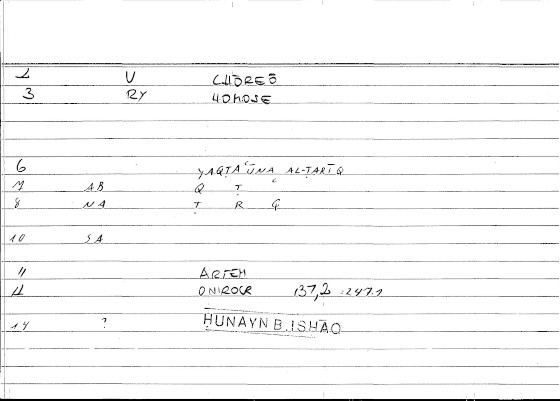 2 V CHŌREŌ
3 RY HOMOSE
6 YAQṬAʿŪNA AL-ṬARĪQ
7 AB Q Ṭ ʿ
8 NA Ṭ R Q
10 SA
11 ARTEM
12 ONIROCR 137,2 :247.1
14 ? ḤUNAYN B. ISḤĀQ